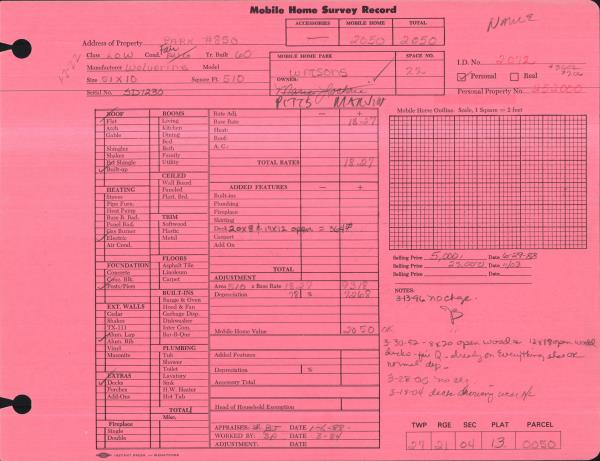 Mobile Home Survey Record
ACCESSORIES MOBILE HOME TOTAL
— 2050 2050
Address of Property PARK #850
Class LOW Cond. Fair Yr. Built 60
Manufacturer Wolverine Model
Size 51X10 Square Ft. 510
Serial No. SD1230
MOBILE HOME PARK SPACE NO.
WATSONS 22
OWNER:
PITTS MARVIN
I.D. No. 2072
Personal Real
Personal Property No.
ROOF
Flat
Arch
Gable
Shingles
Shakes
Bit Shingle
Built-up
HEATING
Stoves
Pipe Furn.
Heat Pump
Base B. Rad.
Panel Rad.
Gas Burner
Electric
Air Cond.
FOUNDATION
Concrete
Conc. Blk.
Posts/Piers
EXT. WALLS
Cedar
Shakes
TX-111
Alum. Lap
Alum. Rib
Vinyl
Masonite
EXTRAS
Decks
Porches
Add-Ons
Fireplace
Single
Double
ROOMS
Living
Kitchen
Dining
Bed
Bath
Family
Utility
CEILED
Wall Board
Paneled
Plast. Brd.
TRIM
Softwood
Plastic
Metal
FLOORS
Asphalt Tile
Linoleum
Carpet
BUILT-INS
Range & Oven
Hood & Fan
Garbage Disp.
Dishwasher
Inter Com.
Bar-B-Que
PLUMBING
Tub
Shower
Toilet
Lavatory
Sink
H.W. Heater
Hot Tub
TOTAL
Misc.
Rate Adj. — +
Base Rate 18.27
Heat:
Roof:
A. C.:
TOTAL RATES 18.27
ADDED FEATURES — +
Built-ins
Plumbing
Fireplace
Skirting
Deck 20X8 & 17X12 open = 364
Carport
Add On
TOTAL
ADJUSTMENT
Area 510 x Base Rate 18.27 9318
Depreciation 78 % 7268
Mobile Home Value 2050 OK
Added Features
Depreciation %
Accessory Total
Head of Household Exemption
APPRAISER: DATE 1-6-88
WORKED BY: BA DATE 3-84
ADJUSTMENT: DATE
Mobile Home Outline. Scale, 1 Square = 2 feet
Selling Price 5,000 Date 6-29-83
Selling Price 23,000 Date 11/03
Selling Price Date
NOTES:
3-13-96 no chge.
3-30-82 - 8X20 open wood & 12X17 open wood
decks - fair Q - already on
normal dep.
3-18-04 decks showing wear
TWP RGE SEC PLAT PARCEL
27 21 04 13 0050